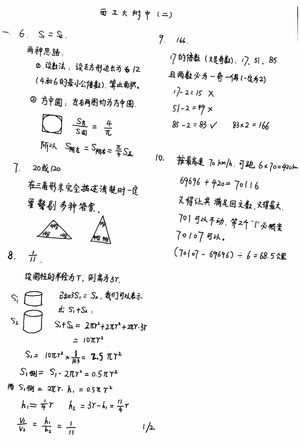 西工大附中（二）
一. 6. S₁ = S₂.
两种思路:
① 设数法: 设正方形边长为6 12
(4和6的最小公倍数) 算出面积。
② 方中圆: 左右两图均为方中圆.
S圆/S方 = π/4
所以 S阴左 = S阴右 = π/4 S正
7. 20或120
在三角形未完全描述清楚时一定
要警惕多种答案.
8. 1/11.
设圆柱的半径为r, 则高为3r.
S₁
S₂
S₁+S₂ = 2πr²+2πr²+2πr·3r
= 10πr²
S₁ = 10πr² × 1/(1+3) = 2.5πr²
S₁侧 = S₁ - 2πr² = 0.5πr²
而 S₁侧 = 2πr·h₁ = 0.5πr²
h₁ = 1/4 r h₂ = 3r-h₁ = 11/4 r
V₁/V₂ = h₁/h₂ = 1/11
1/2
9. 166.
17的倍数 (又是奇数): 17、51、85
且两数必为一奇一偶(一定为2)
17-2=15 ×
51-2=49 ×
85-2=83 ✓ 83×2=166
10. 按最高速 70km/h, 可跑 6×70=420km
69696+420=70116
又得让其满足回文数, 又得最大.
701可以不动, 第2个"1"必须变
70107可以.
(70107-69696)÷6=68.5公里